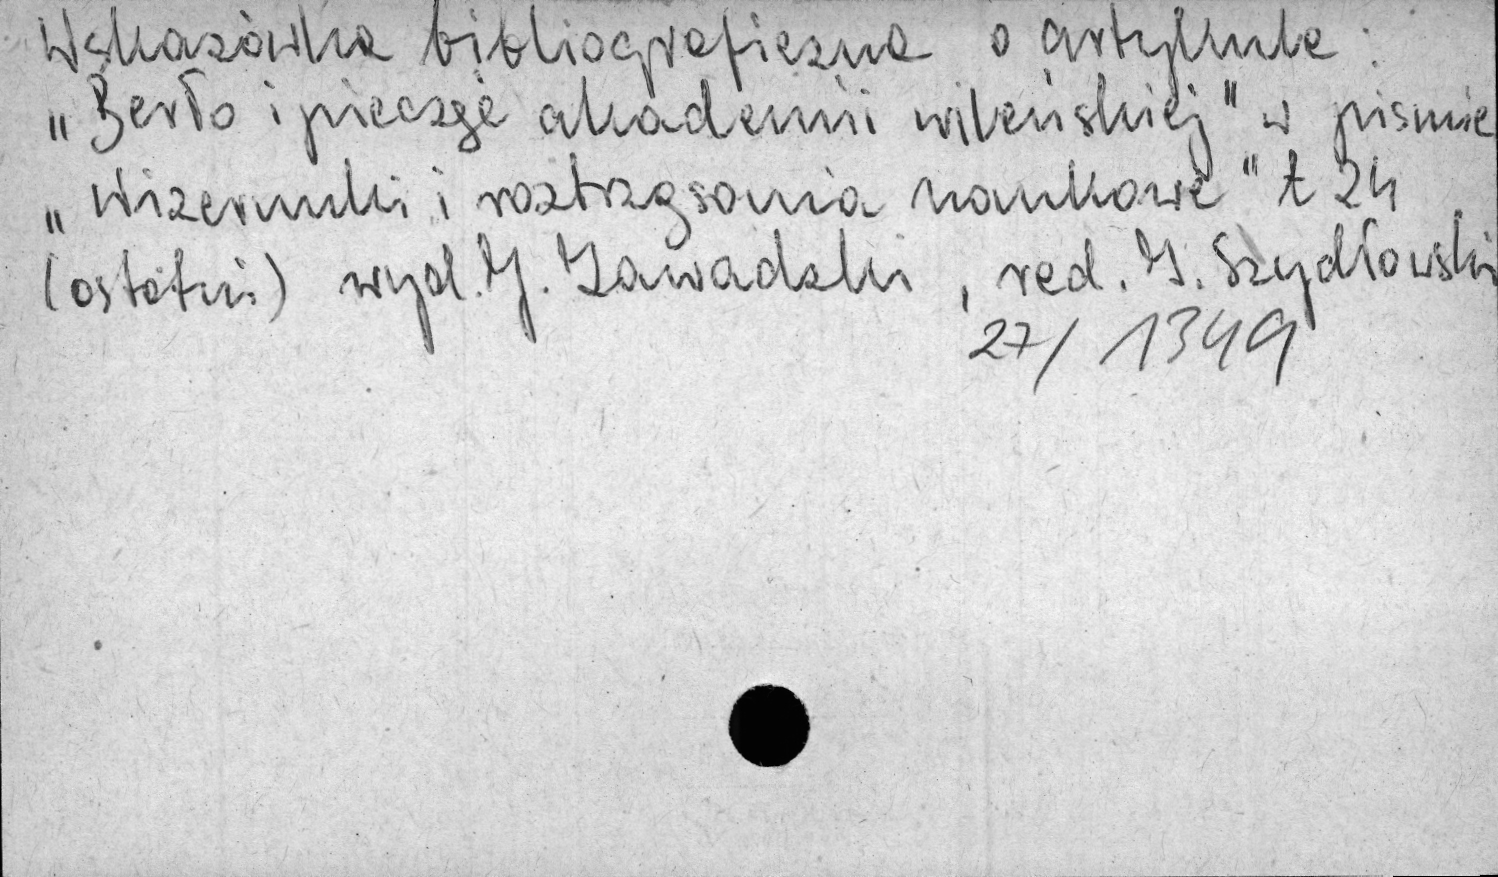 Wskazówka bibliograficzna o artykule:
„Berło i pieczęć akademii wileńskiej" w pismie
„Wizerunki i roztrząsania naukowe" t 24
(ostatni) wyd. J. Zawadzki, red. I. Szydłowski
27/1349